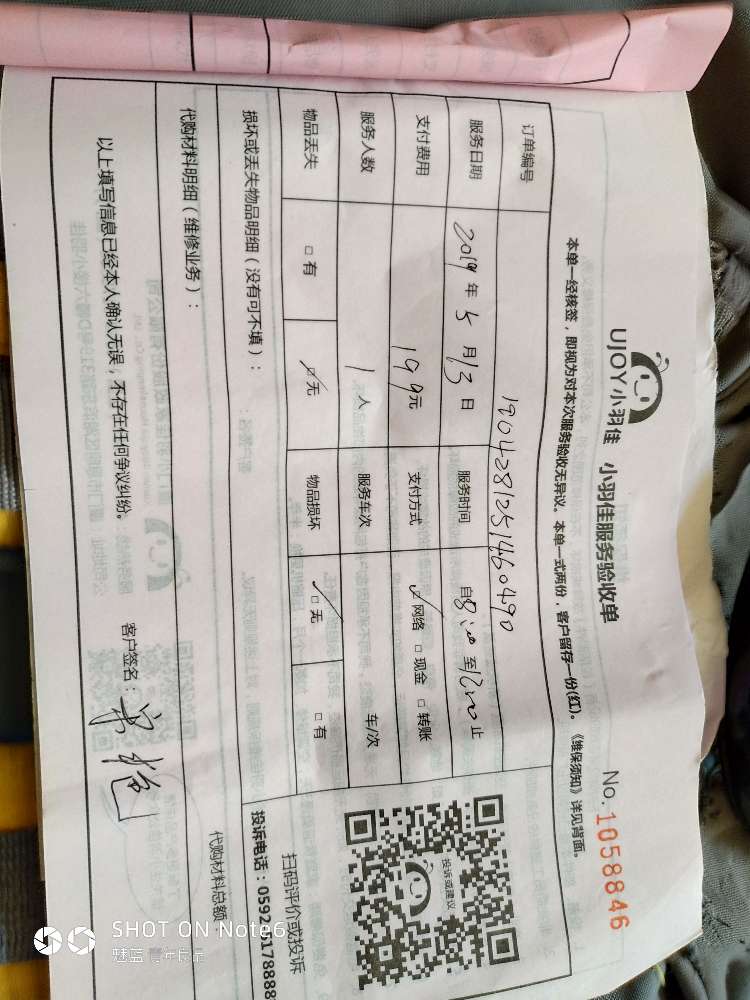 UJOY小羽佳 小羽佳服务验收单
No.1058846
本单一经核签，即视为对本次服务验收无异议。本单一式两份，客户留存一份(红)。《维保须知》详见背面。
订单编号 1904281251460490
服务日期 2019年5月13日 服务时间 自8:00至12:00止
支付费用 199元 支付方式 ✓网络 □现金 □转账
服务人数 1人 服务车次 车/次
物品丢失 □有 ☑无 物品损坏 ☑无 □有
损坏或丢失物品明细（没有可不填）：
投诉或建议
扫码评价或投诉
投诉电话：0592-5178888
代购材料明细（维修业务）：
代购材料总额
以上填写信息已经本人确认无误，不存在任何争议纠纷。
客户签名：
SHOT ON Note6
魅蓝 青年良品